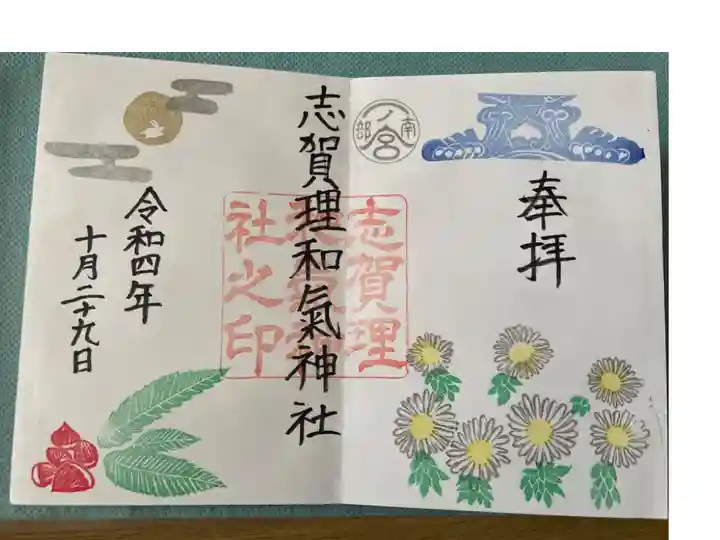 奉拝
南部一ノ宮
志賀理和氣神社
志賀理
和氣神
社之印
令和四年
十月二十九日